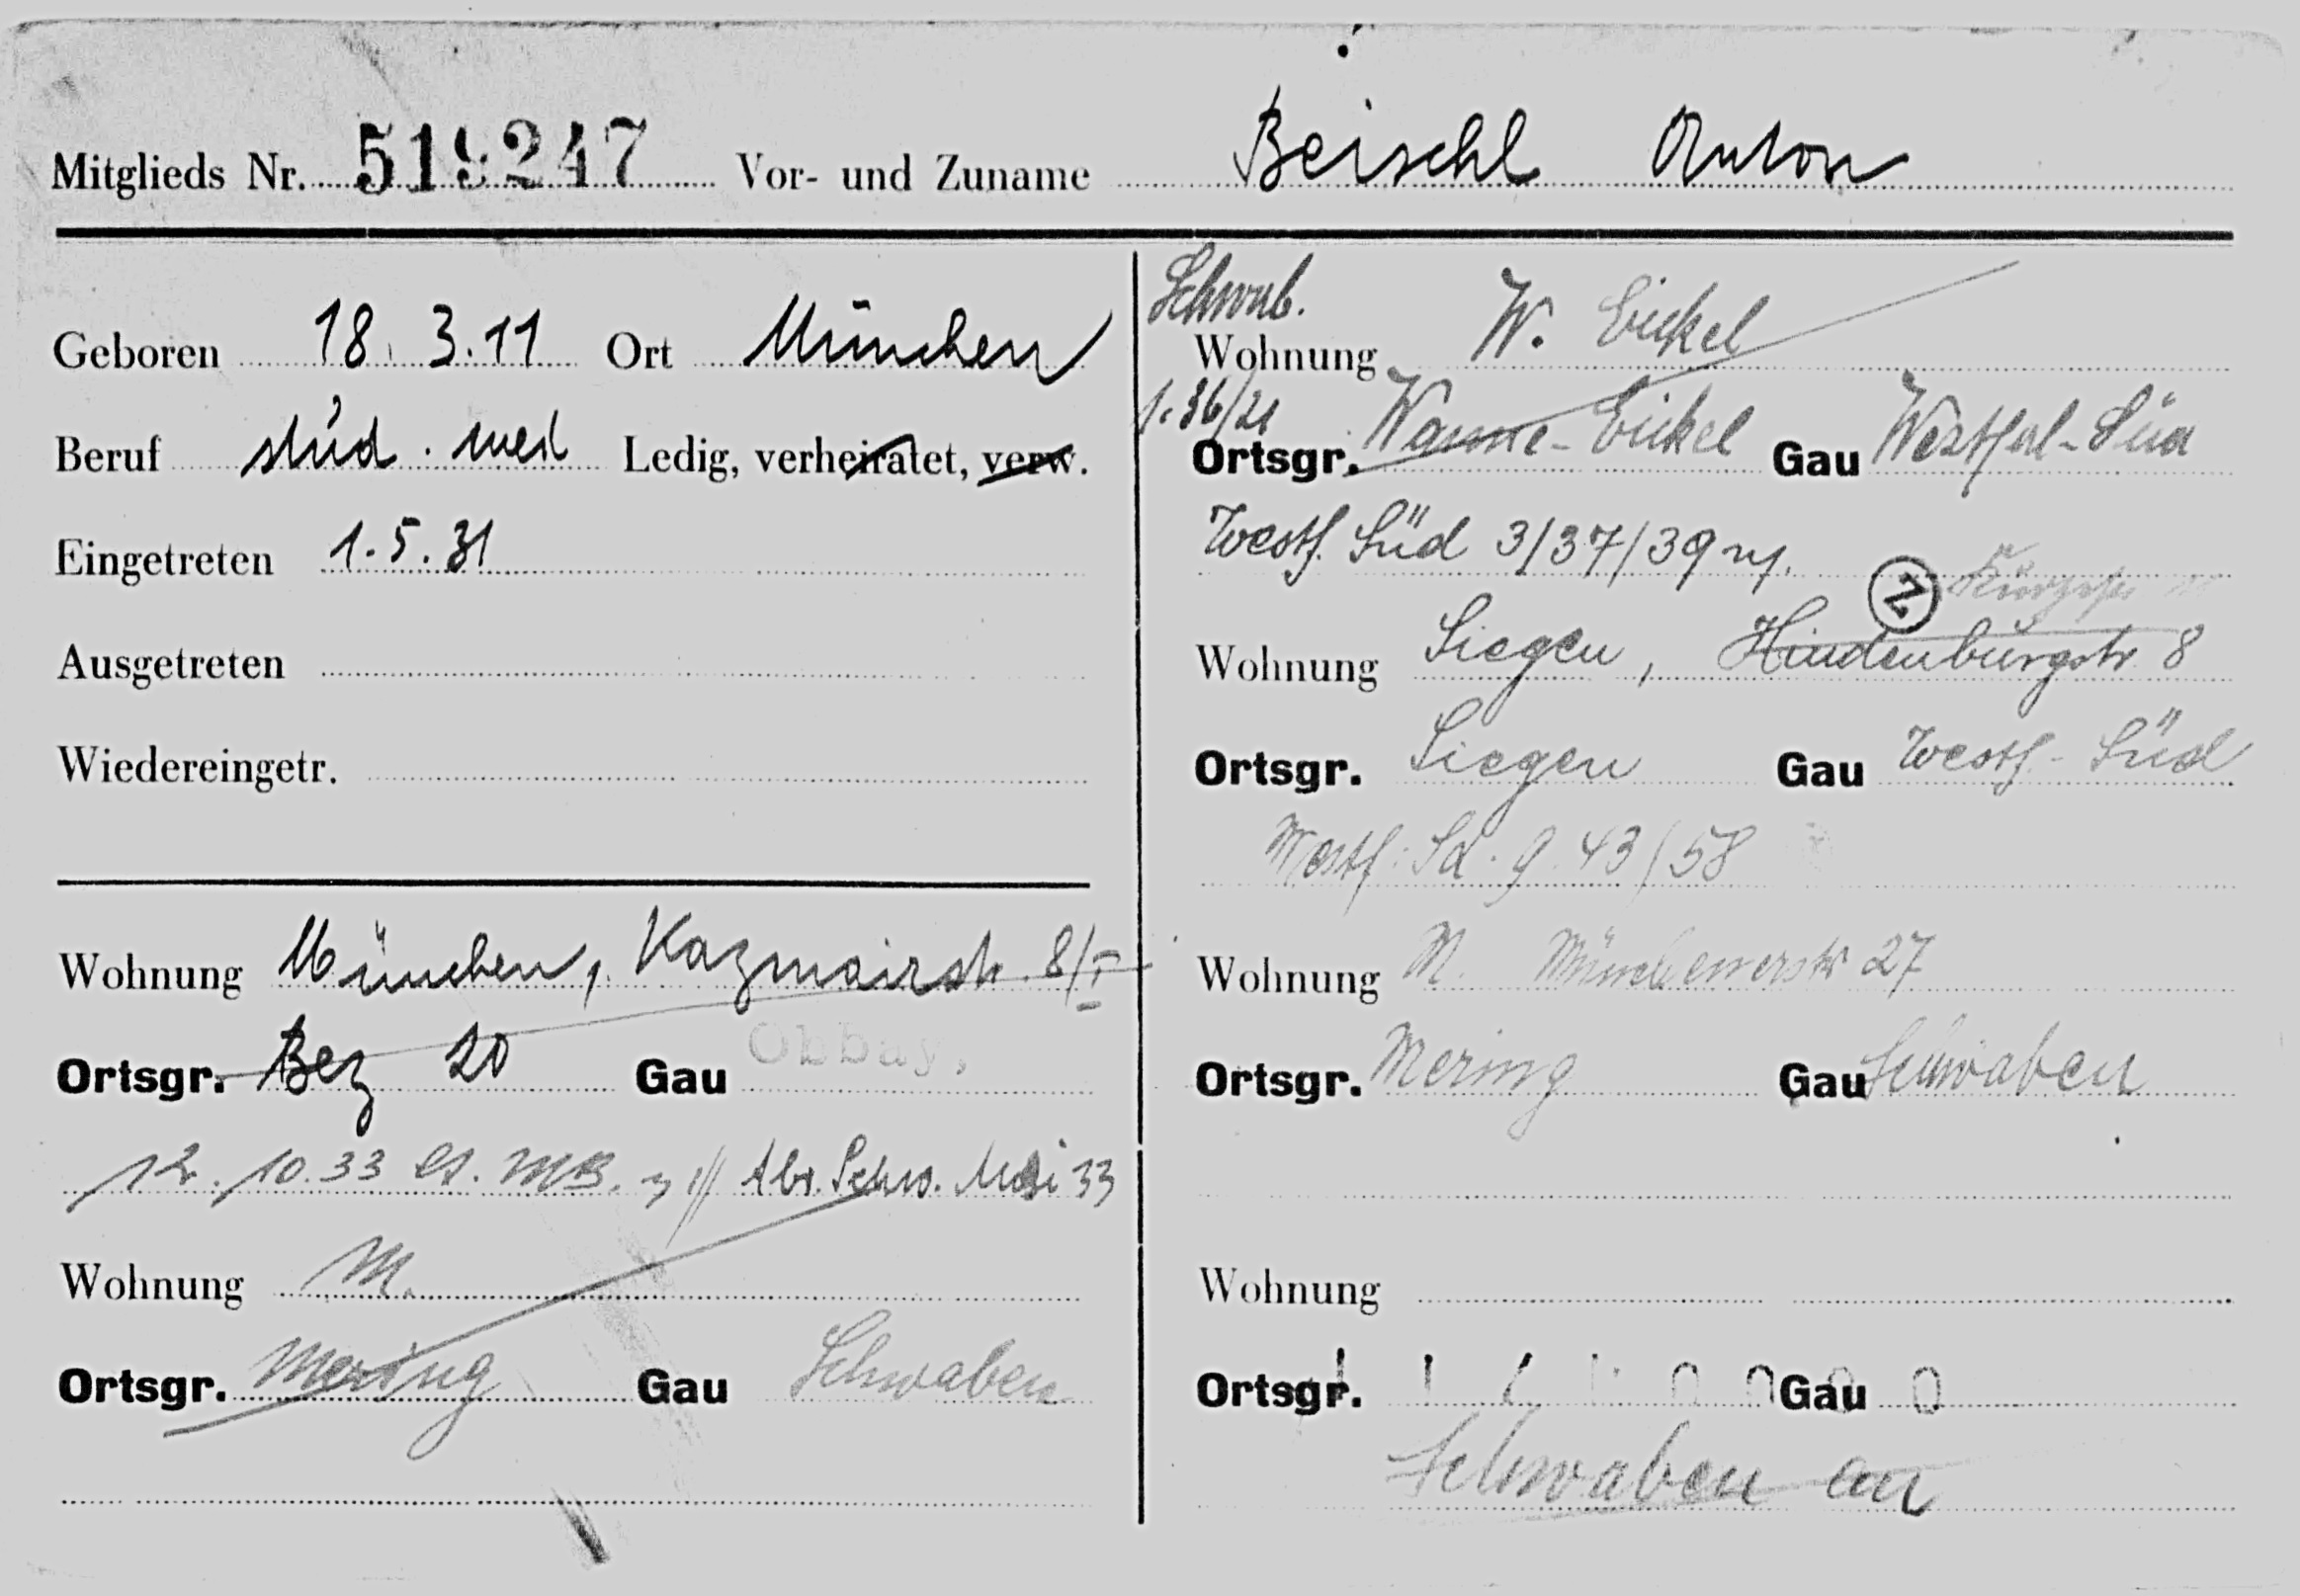 Mitglieds Nr. 519247 Vor- und Zuname Beischl Anton
Geboren 18. 3. 11 Ort München
Beruf stud. med Ledig, verheiratet, verw.
Eingetreten 1. 5. 31
Ausgetreten
Wiedereingetr.
Wohnung München, Kazmairstr. 8/I
Ortsgr. Bez 20 Gau Obbay.
12. 10. 33 Schw. Mai 33
Wohnung M.
Ortsgr. Mering Gau Schwaben
Schwab.
Wohnung W. Eickel
1.36/21
Ortsgr. Wanne-Eickel Gau Westfal-Süd
Westf. Süd 3/37/39
Z
Wohnung Siegen, Hindenburgstr. 8
Ortsgr. Siegen Gau Westf.-Süd
Westf. Sd. 9.43/58
Wohnung M. Münchenerstr 27
Ortsgr. Mering Gau Schwaben
Wohnung
Ortsgr. Gau
Schwaben an